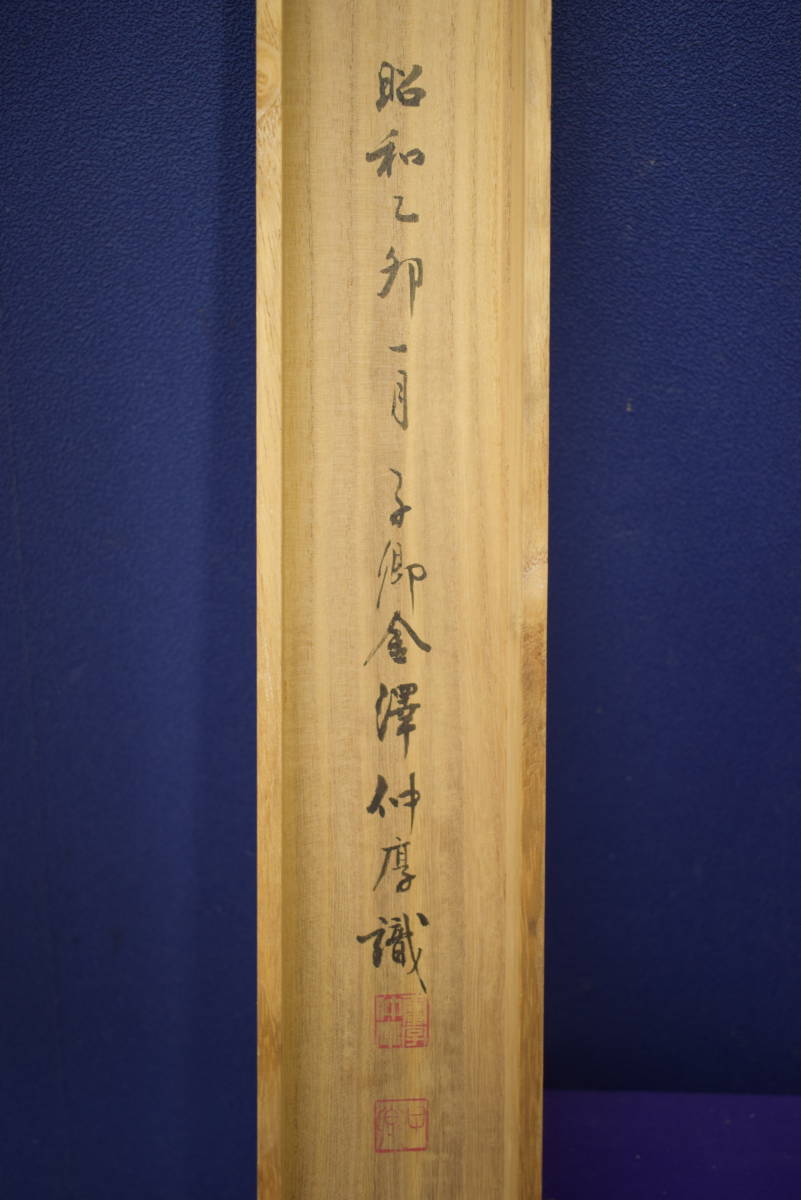 昭和乙卯一月子卿金澤仲厚識